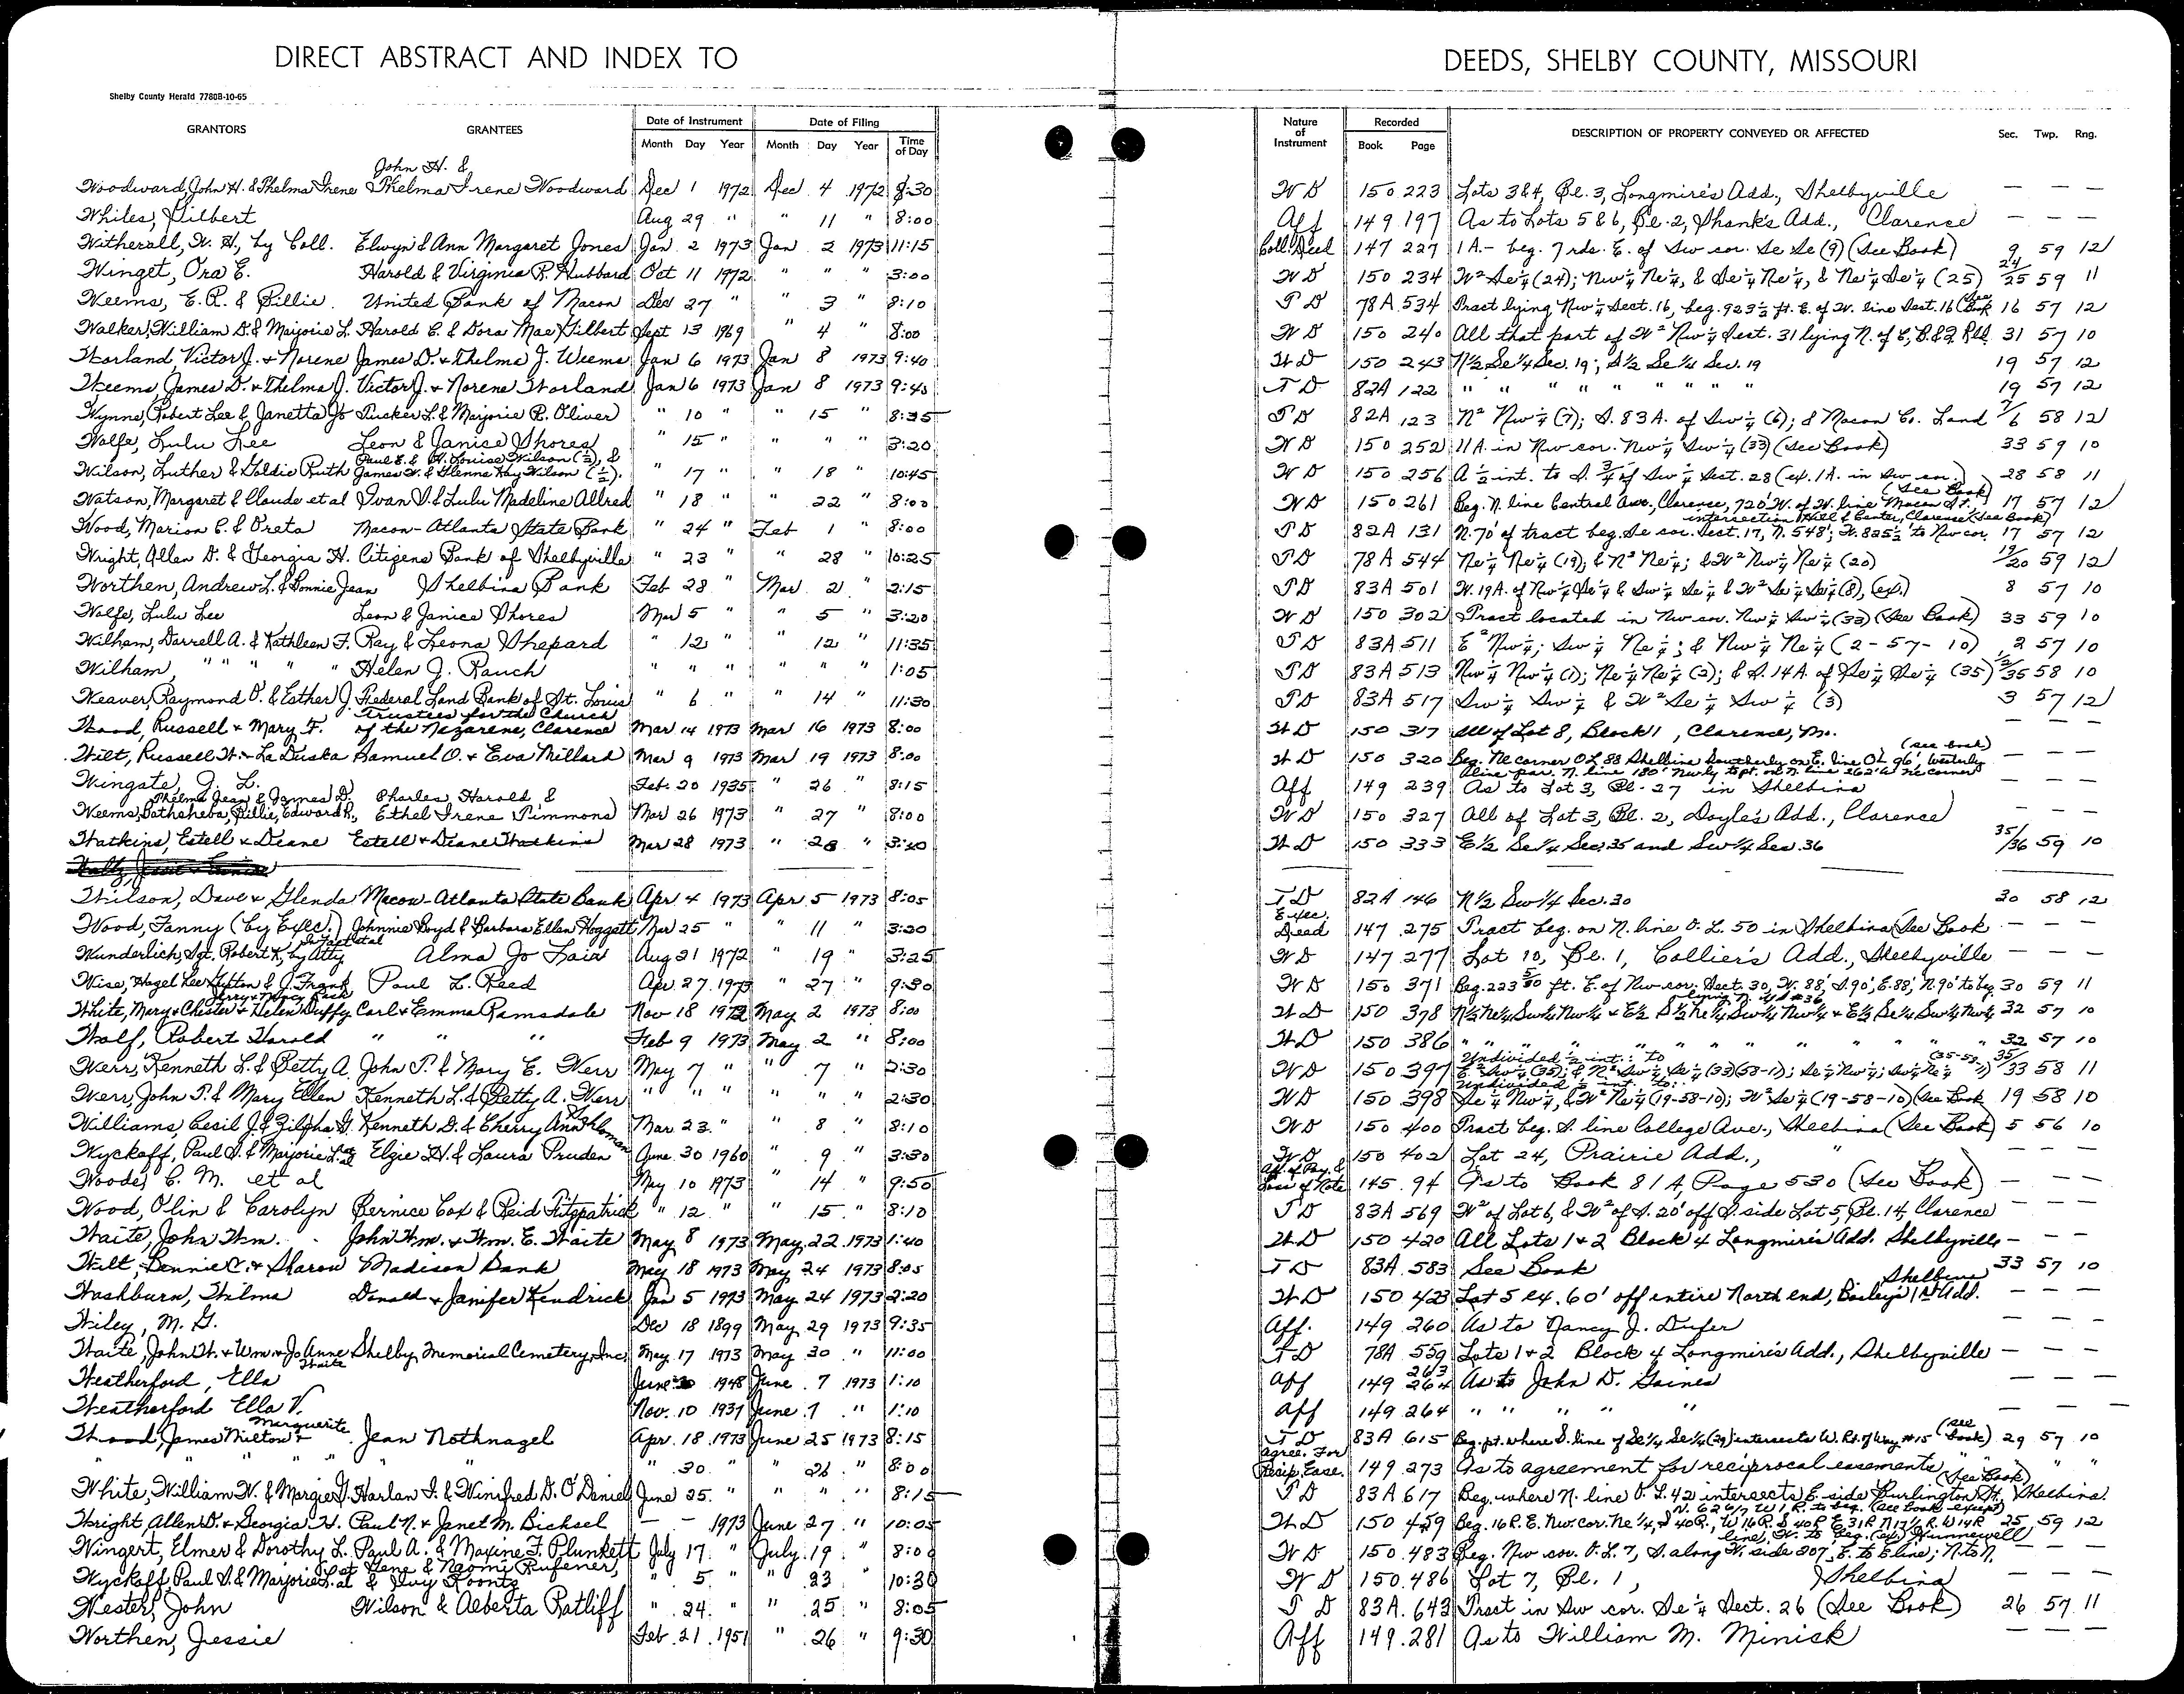 DIRECT ABSTRACT AND INDEX TO DEEDS, SHELBY COUNTY, MISSOURI
Shelby County Herald 7780B-10-65
GRANTORS GRANTEES Date of Instrument Month Day Year Date of Filing Month Day Year Time of Day Nature of Instrument Recorded Book Page DESCRIPTION OF PROPERTY CONVEYED OR AFFECTED Sec. Twp. Rng.
John H. &
Woodward, John H. & Thelma Irene Thelma Irene Woodward Dec 1 1972 Dec 4 1972 8:30 W D 150 223 Lots 3&4, Bl. 3, Longmire's Add., Shelbyville — — —
Whiles, Gilbert Aug 29 " " 11 " 8:00 Aff 149 197 As to Lots 5 & 6, Bl. 2, Shank's Add., Clarence — — —
Witherall, W. H., by Coll. Elwyn & Ann Margaret Jones Jan 2 1973 Jan 2 1973 11:15 Coll. Deed 147 227 1 A.- beg. 7 rds. E. of Sw cor. Se Se (9) (See Book) 9 59 12
Winget, Ora E. Harold & Virginia R. Hubbard Oct 11 1972 " " " 3:00 W D 150 234 W² Se¼ (24); Nw¼ Ne¼, & Se¼ Ne¼, & Ne¼ Se¼ (25) 24/25 59 11
Weems, E. R. & Billie United Bank of Macon Dec 27 " " 3 " 8:10 T D 78A 534 Tract lying Nw¼ Sect. 16, beg. 923½ ft. E. of W. line Sect. 16 (See Book 16 57 12
Walker, William D. & Marjorie L. Harold C. & Dora Mae Gilbert Sept 13 1969 " 4 " 8:00 W D 150 240 All that part of W² Nw¼ Sect. 31 lying N. of C, B. & Q RR. 31 57 10
Worland, Victor J. + Norene James D. + Thelma J. Weems Jan 6 1973 Jan 8 1973 9:40 W D 150 243 N½ Se¼ Sec. 19; S½ Se¼ Sec. 19 19 57 12
Weems James D. + Thelma J. Victor J. + Norene Worland Jan 6 1973 Jan 8 1973 9:45 T D 82A 122 " " " " " " 19 57 12
Wynne, Robert Lee & Janetta Jo Tucker L. & Marjorie R. Oliver " 10 " " 15 " 8:35 T D 82A 123 N² Nw¼ (7); S. 83 A. of Sw¼ (6); & Macon Co. Land 7/6 58 12
Wolfe, Lulu Lee Leon & Janice Shores " 15 " " " " 3:20 W D 150 252 11A. in Nw cor. Nw¼ Sw¼ (33) (See Book) 33 59 10
Paul E. & H. Louise Wilson (½), &
Wilson, Luther & Goldie Ruth James W. & Glenna Kay Wilson (½). " 17 " " 18 " 10:45 W D 150 256 A ½ int. to S. ¾ of Sw¼ Sect. 28 (ex. 1A. in Sw cor.) 28 58 11
(See Book)
Watson, Margaret & Claude et al Ivan D. & Lulu Madeline Allred " 18 " " 22 " 8:00 W D 150 261 Beg. N. line Central Ave., Clarence, 720' W. of W. line Macon St. 17 57 12
intersection Hill & Center, Clarence (See Book)
Wood, Marion C. & Oreta Macon-Atlanta State Bank " 24 " Feb 1 " 8:00 T D 82A 131 N. 70' of tract beg. Se cor. Sect. 17, N. 548'; W. 825½' to Nw cor. 17 57 12
Wright, Allen D. & Georgia H. Citizens Bank of Shelbyville " 23 " 28 " 10:25 T D 78A 544 Ne¼ Ne¼ (19); & N² Ne¼; & W² Nw¼ Ne¼ (20) 19/20 59 12
Worthen, Andrew L. & Bonnie Jean Shelbina Bank Feb 28 " Mar 2 " 2:15 T D 83A 501 W. 19A. of Nw¼ Se¼ & Sw¼ Se¼ & W² Se¼ Se¼ (8), (ex.) 8 57 10
Wolfe, Lulu Lee Leon & Janice Shores Mar 5 " " 5 " 3:20 W D 150 302 Tract located in Nw cor. Nw¼ Sw¼ (33) (See Book) 33 59 10
Wilham, Darrell A. & Kathleen F. Ray & Leona Shepard " 12 " " 12 " 11:35 T D 83A 511 E² Nw¼; Sw¼ Ne¼; & Nw¼ Ne¼ (2-57-10) 2 57 10
Wilham, " " " " " Helen J. Rauch " " " " " " 1:05 T D 83A 513 Nw¼ Nw¼ (1); Ne¼ Ne¼ (2); & S. 14A. of Se¼ Se¼ (35) 1/2/35 58 10
Weaver, Raymond O. & Esther J. Federal Land Bank of St. Louis " 6 " " 14 " 11:30 T D 83A 517 Sw¼ Sw¼ & W² Se¼ Sw¼ (3) 3 57 12
Trustees for the Church
Wood, Russell + Mary F. of the Nazarene, Clarence Mar 14 1973 Mar 16 1973 8:00 W D 150 317 All of Lot 8, Block 1, Clarence, Mo. — — —
(see book)
Wilt, Russell W. + La Duska Samuel O. + Eva Millard Mar 9 1973 Mar 19 1973 8:00 W D 150 320 Beg. Ne corner OL 88 Shelbina Southerly on E. line OL 96', Westerly — — —
a line par. N. line 180' Nwly to pt. on N. line 262' W Ne corner
Wingate, J. L. Feb. 20 1935 " 26 " 8:15 Aff 149 239 As to Lot 3, Bl. 27 in Shelbina — — —
Thelma Jean & James D. Charles, Harold &
Weems, Bathsheba, Billie, Edward R., Ethel Irene Timmons Mar 26 1973 " 27 " 8:00 W D 150 327 All of Lot 3, Bl. 2, Doyle's Add., Clarence — — —
Watkins, Estell + Deane Estell + Deane Watkins Mar 28 1973 " 28 " 3:40 W D 150 333 E½ Se¼ Sec. 35 and Sw¼ Sec. 36 35/36 59 10
Wilson, Dave + Glenda Macon-Atlanta State Bank Apr. 4 1973 Apr. 5 1973 8:05 T D 82A 146 N½ Sw¼ Sec. 30 30 58 12
Wood, Fanny (by Exec.) Johnnie Boyd & Barbara Ellen Hoggett Mar 25 " " 11 " 3:20 Exec. Deed 147 275 Tract beg. on N. line O. L. 50 in Shelbina (See Book — — —
In fact et al
Wunderlich, Sgt. Robert K, by Atty Alma Jo Lair Aug 21 1972 " 19 " 3:25 W D 147 277 Lot 10, Bl. 1, Collier's Add., Shelbyville — — —
Wise, Hazel Lee Lytton & J. Frank Paul L. Reed Apr. 27 1973 " 27 " 9:30 W D 150 371 Beg. 223 ft. E. of Nw cor. Sect. 30, W. 88', S. 90', E. 88', N. 90' to beg. 30 59 11
White, Mary + Chester + Helen Duffy Carl + Emma Ramsdale Nov 18 1972 May 2 1973 8:00 W D 150 378 N½ Ne¼ Sw¼ Nw¼ + E½ S½ Ne¼ Sw¼ Nw¼ + E½ Se¼ Sw¼ Nw¼ 32 57 10
Wolf, Robert Harold " " " Feb 9 1973 May 2 " 8:00 W D 150 386 " " " " " " " " " " 32 57 10
Undivided ½ int. to
Werr, Kenneth L. & Betty A. John T. & Mary E. Werr May 7 " " 7 " 2:30 W D 150 397 E² Sw¼ (35); & N² Sw¼ Se¼ (33) (58-11); Se¼ Nw¼; Sw¼ Ne¼ 35/33 58 11
Undivided ½ int. to:
Werr, John T. & Mary Ellen Kenneth L. & Betty A. Werr " " " " " " 2:30 W D 150 398 Se¼ Nw¼, & W² Ne¼ (19-58-10); W² Se¼ (19-58-10) (See Book 19 58 10
Williams, Cecil J. & Zilpha G. Kenneth D. & Cherry Ann Mar 23 " " 8 " 8:10 W D 150 400 Tract beg. S. line College Ave., Shelbina (See Book) 5 56 10
Wyckoff, Paul S. & Marjorie L. et al Elzie H. & Laura Pruden June 30 1960 " 9 " 3:30 W D 150 402 Lot 24, Prairie Add., " — — —
Woods, C. M. et al May 10 1973 " 14 " 9:50 Aff. of Pay. & Loss of Note 145 94 As to Book 81A, Page 530 (See Book) — — —
Wood, Olin & Carolyn Bernice Cox & Reid Fitzpatrick " 12 " " 15 " 8:10 T D 83A 569 W² of Lot 6, & W² of S. 20' off S. side Lot 5, Bl. 14, Clarence — — —
Waite, John Wm. John Wm. + Wm. E. Waite May 8 1973 May 22 1973 1:40 W D 150 420 All Lots 1 + 2 Block 4 Longmire's Add. Shelbyville — — —
Wilt, Bennie C. + Sharon Madison Bank May 18 1973 May 24 1973 8:05 T D 83A 583 See Book 33 57 10
Shelbina
Washburn, Wilma Donald + Janifer Kendrick Jan 5 1973 May 24 1973 2:20 W D 150 423 Lot 5 ex. 60' off entire North end, Bailey's 1st Add. — — —
Wiley, M. G. Dec 18 1899 May 29 1973 9:35 Aff. 149 260 As to Nancy J. Dufer — — —
Waite, John W. + Wm. + Jo Anne Waite Shelby Memorial Cemetery, Inc. May 17 1973 May 30 " 11:00 T D 78A 559 Lots 1 + 2 Block 4 Longmire's Add., Shelbyville — — —
Weatherford, Ella June 30 1948 June 7 1973 1:10 Aff 149 263 264 As to John D. Gaines — — —
Weatherford Ella V. Nov. 10 1937 June 7 " 1:10 Aff 149 264 " " " " " — — —
Wood, James Milton + Marguerite Jean Nothnagel Apr. 18 1973 June 25 1973 8:15 T D 83A 615 Beg. pt. where S. line of Se¼ Se¼ (29) intersects W. Rt. of Way #15 (see book) 29 57 10
" " " " " " 30 " " 26 " 8:00 Agree. For Recip. Ease. 149 273 As to agreement for reciprocal easements " " "
(See Book)
White, William W. & Margie G. Harlan I. & Winifred D. O'Daniel June 25 " " " " 8:15 T D 83A 617 Beg. where N. line O. L. 42 intersects E. side Burlington St. Shelbina
Wright Allen D. + Georgia H. Paul N. + Janet M. Bichsel — — 1973 June 27 " 10:05 W D 150 459 Beg. 16 R. E. Nw. cor. Ne¼, S 40 R., W 16 R. S 40 R E 31 R N 17½ R. W 14 R 25 59 12
line, W. to beg. (ex) Hunnewell
Wingert, Elmer & Dorothy L. Paul A. & Maxine F. Plunkett July 17 " July 19 " 8:00 W D 150 483 Beg. Nw cor. O. L. 7, S. along W. side 207', E. to E line; N. to N. — — —
Wyckoff, Paul S. & Marjorie L. et al Gene & Naomi Rufener, & Ivy Koontz " 5 " " 23 " 10:30 W D 150 486 Lot 7, Bl. 1, Shelbina — — —
Wester, John Wilson & Alberta Ratliff " 24 " " 25 " 8:05 T D 83A 643 Tract in Sw cor. Se¼ Sect. 26 (See Book) 26 57 11
Worthen, Jessie Feb 21 1951 " 26 " 9:30 Aff 149 281 As to William M. Minick — — —